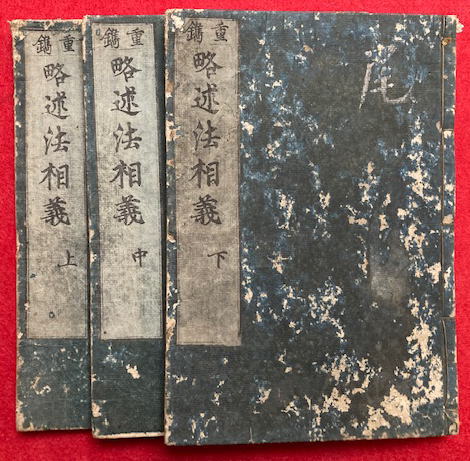 重鐫
略述法相義
上
重鐫
略述法相義
中
重鐫
略述法相義
下
尾